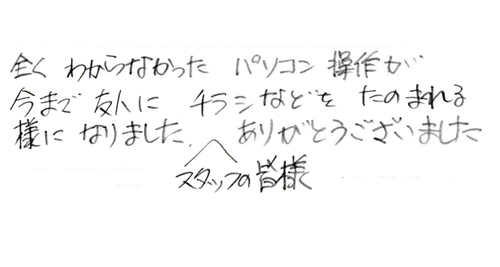 全く わからなかった パソコン 操作が
今まで 友人に チラシなどを たのまれる
様に なりました. ありがとうございました
スタッフの皆様